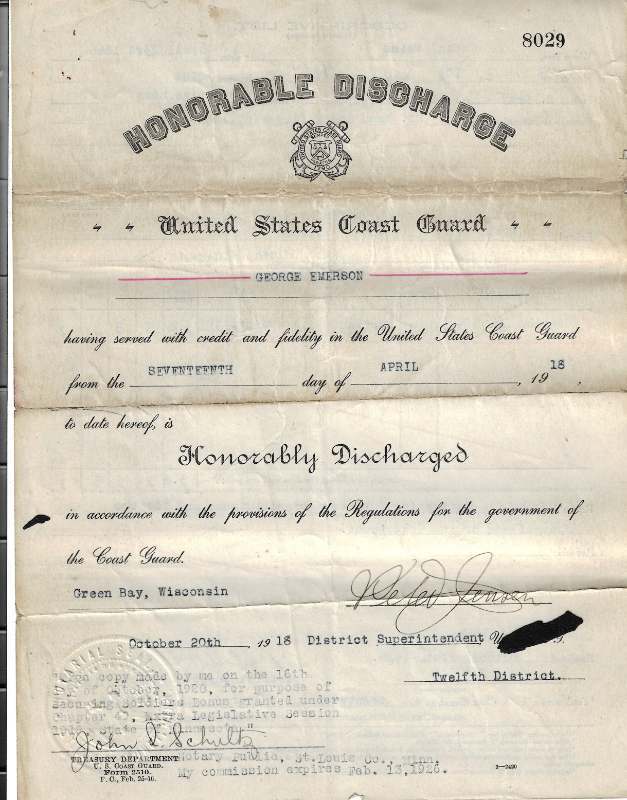 8029
HONORABLE DISCHARGE
United States Coast Guard
GEORGE EMERSON
having served with credit and fidelity in the United States Coast Guard
from the SEVENTEENTH day of APRIL, 1918,
to date hereof, is
Honorably Discharged
in accordance with the provisions of the Regulations for the government of
the Coast Guard.
Green Bay, Wisconsin
Peter Jensen
October 20th, 1918 District Superintendent, U
Twelfth District.
copy made by me on the 16th
of October, 1920, for purpose of
Soldiers Bonus granted under
Chapter Extra Legislative Session
State of
John L. Schultz
Notary Public, St. Louis Co., Minn.
My commission expires Feb. 13, 1926.
TREASURY DEPARTMENT
U. S. COAST GUARD.
Form 2510.
2-2490